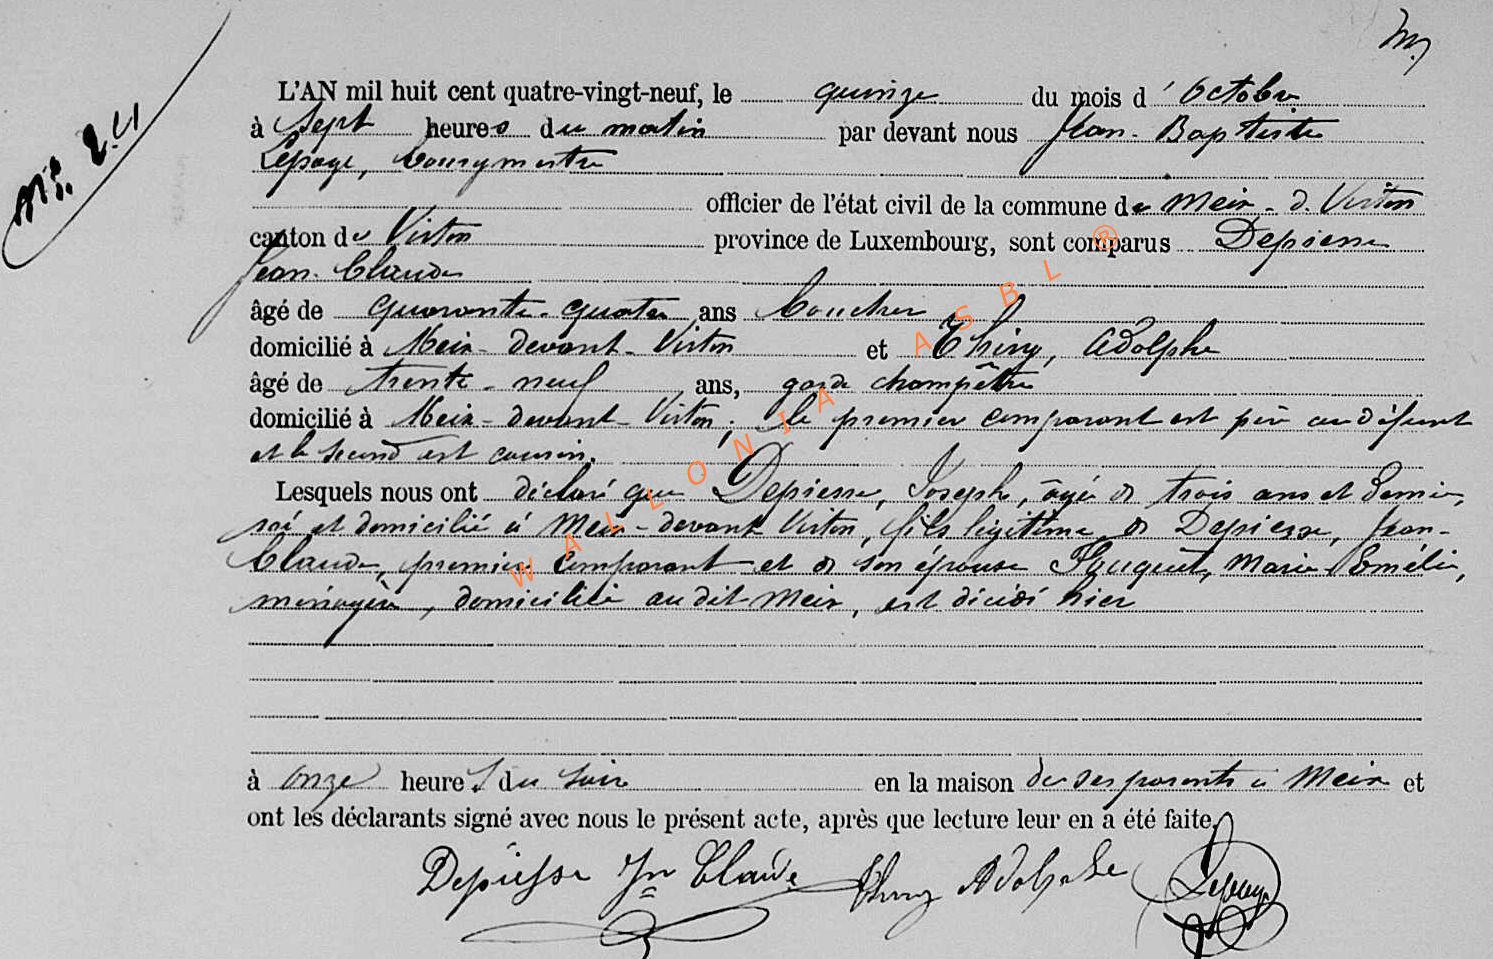 N° 24
L'AN mil huit cent quatre-vingt-neuf, le quinze du mois d'Octobre
à Sept heures du matin par devant nous Jean-Baptiste
Lepage, bourgmestre
officier de l'état civil de la commune de Meix-d. Virton
canton de Virton province de Luxembourg, sont comparus Depiesse
Jean-Claude
âgé de quarante-quatre ans boucher
domicilié à Meix-devant-Virton et Thiry, Adolphe
âgé de trente-neuf ans, garde champêtre
domicilié à Meix-devant-Virton; le premier comparant est père au défunt
et le second est cousin.
Lesquels nous ont déclaré que Depiesse, Joseph, âgé de trois ans et demi,
né et domicilié à Meix-devant Virton, fils légitime de Depiesse, Jean-
Claude, premier comparant et de son épouse Fouquet, Marie-Emélie,
ménagère, domiciliée au dit Meix, est décédé hier
à onze heures du soir en la maison de ses parents à Meix et
ont les déclarants signé avec nous le présent acte, après que lecture leur en a été faite.
Depiesse Jn Claude Thiry Adolphe Lepage
WALLONIA ASBL ®